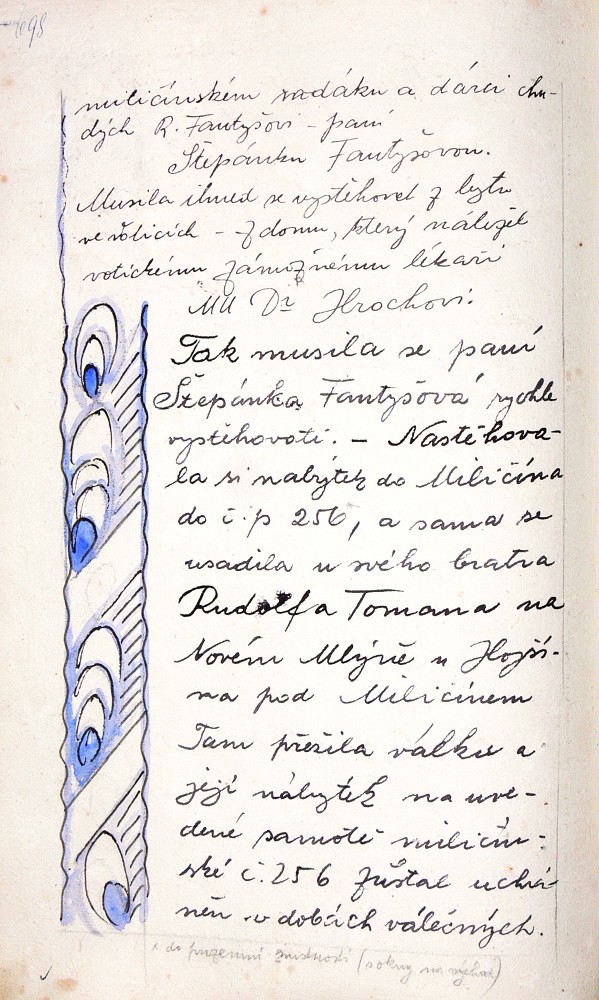 miličínském radáku a dárci chu-
dých R. Fantyšovi - paní
Štepánku Fantyšovou.
Musila ihned se vystěhovat z bytu
ve Voticích - z domu, který náležel
votickému zámožnému lékaři
MU Dr Hrochovi.
Tak musila se paní
Štepánka Fantyšová rychle
vystěhovati. - Nastěhova-
la si nábytek do Miličína
do č. p 256, a sama se
usadila u svého bratra
Rudolfa Tomana na
Novém Mlýně u Hojší-
na pod Miličínem
Tam přežila válku a
její nábytek na uve-
dené samotě miličín-
ské č. 256 zůstal uchrá-
něn v dobách válečných.
x do přízemní místnosti (s okny na východ)